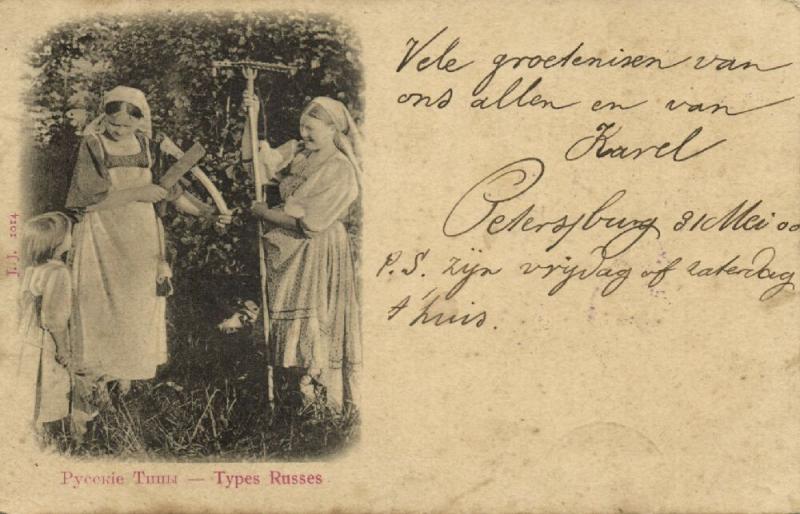 Vele groetenisen van
ons allen en van
Karel
Petersburg 31 Mei 00
P.S. zijn vrijdag of zaterdag
t'huis.
J. J. 1014
Русскіе Типы — Types Russes